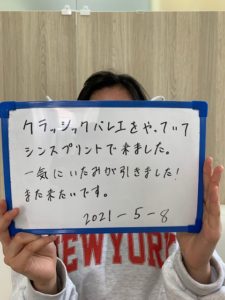 クラッシックバレエをやっていて
シンスプリントで来ました。
一気にいたみが引きました!
また来たいです。
2021-5-8
NEW YORK